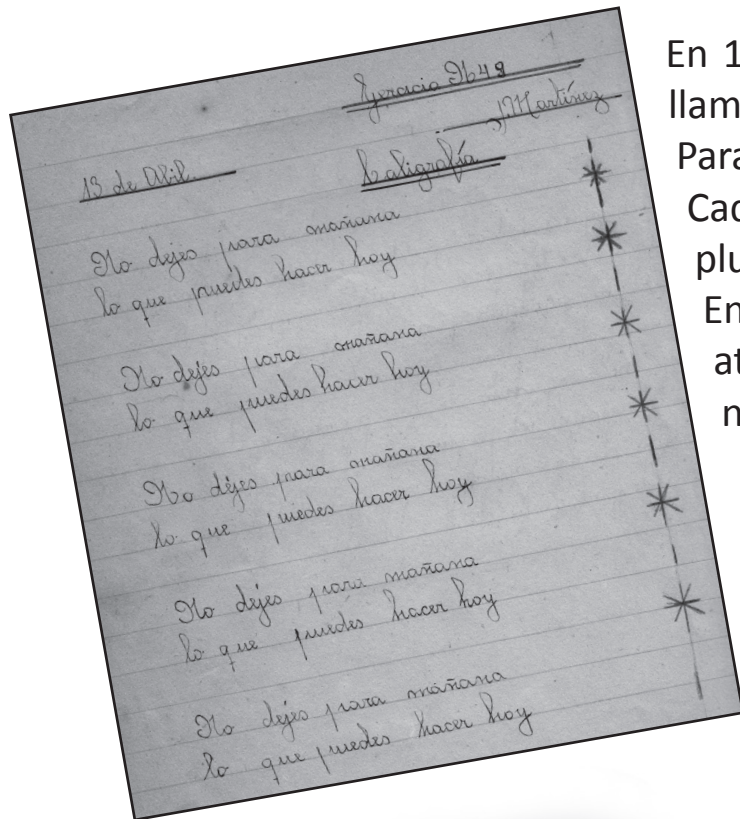 Ejercicio Nº 48
J. Martínez
13 de Abril
Caligrafía
No dejes para mañana
lo que puedes hacer hoy
No dejes para mañana
lo que puedes hacer hoy
No dejes para mañana
lo que puedes hacer hoy
No dejes para mañana
lo que puedes hacer hoy
No dejes para mañana
lo que puedes hacer hoy
En 1
llam
Para
Cad
plu
En
at
n